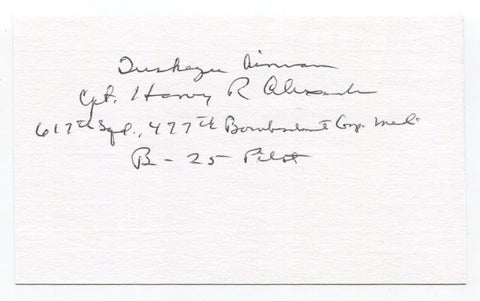 Tuskegee Airman
Cpt. Harvey R Alexander
617th Sqd., 477th Bombardment Grp. Med.
B-25 Pilot